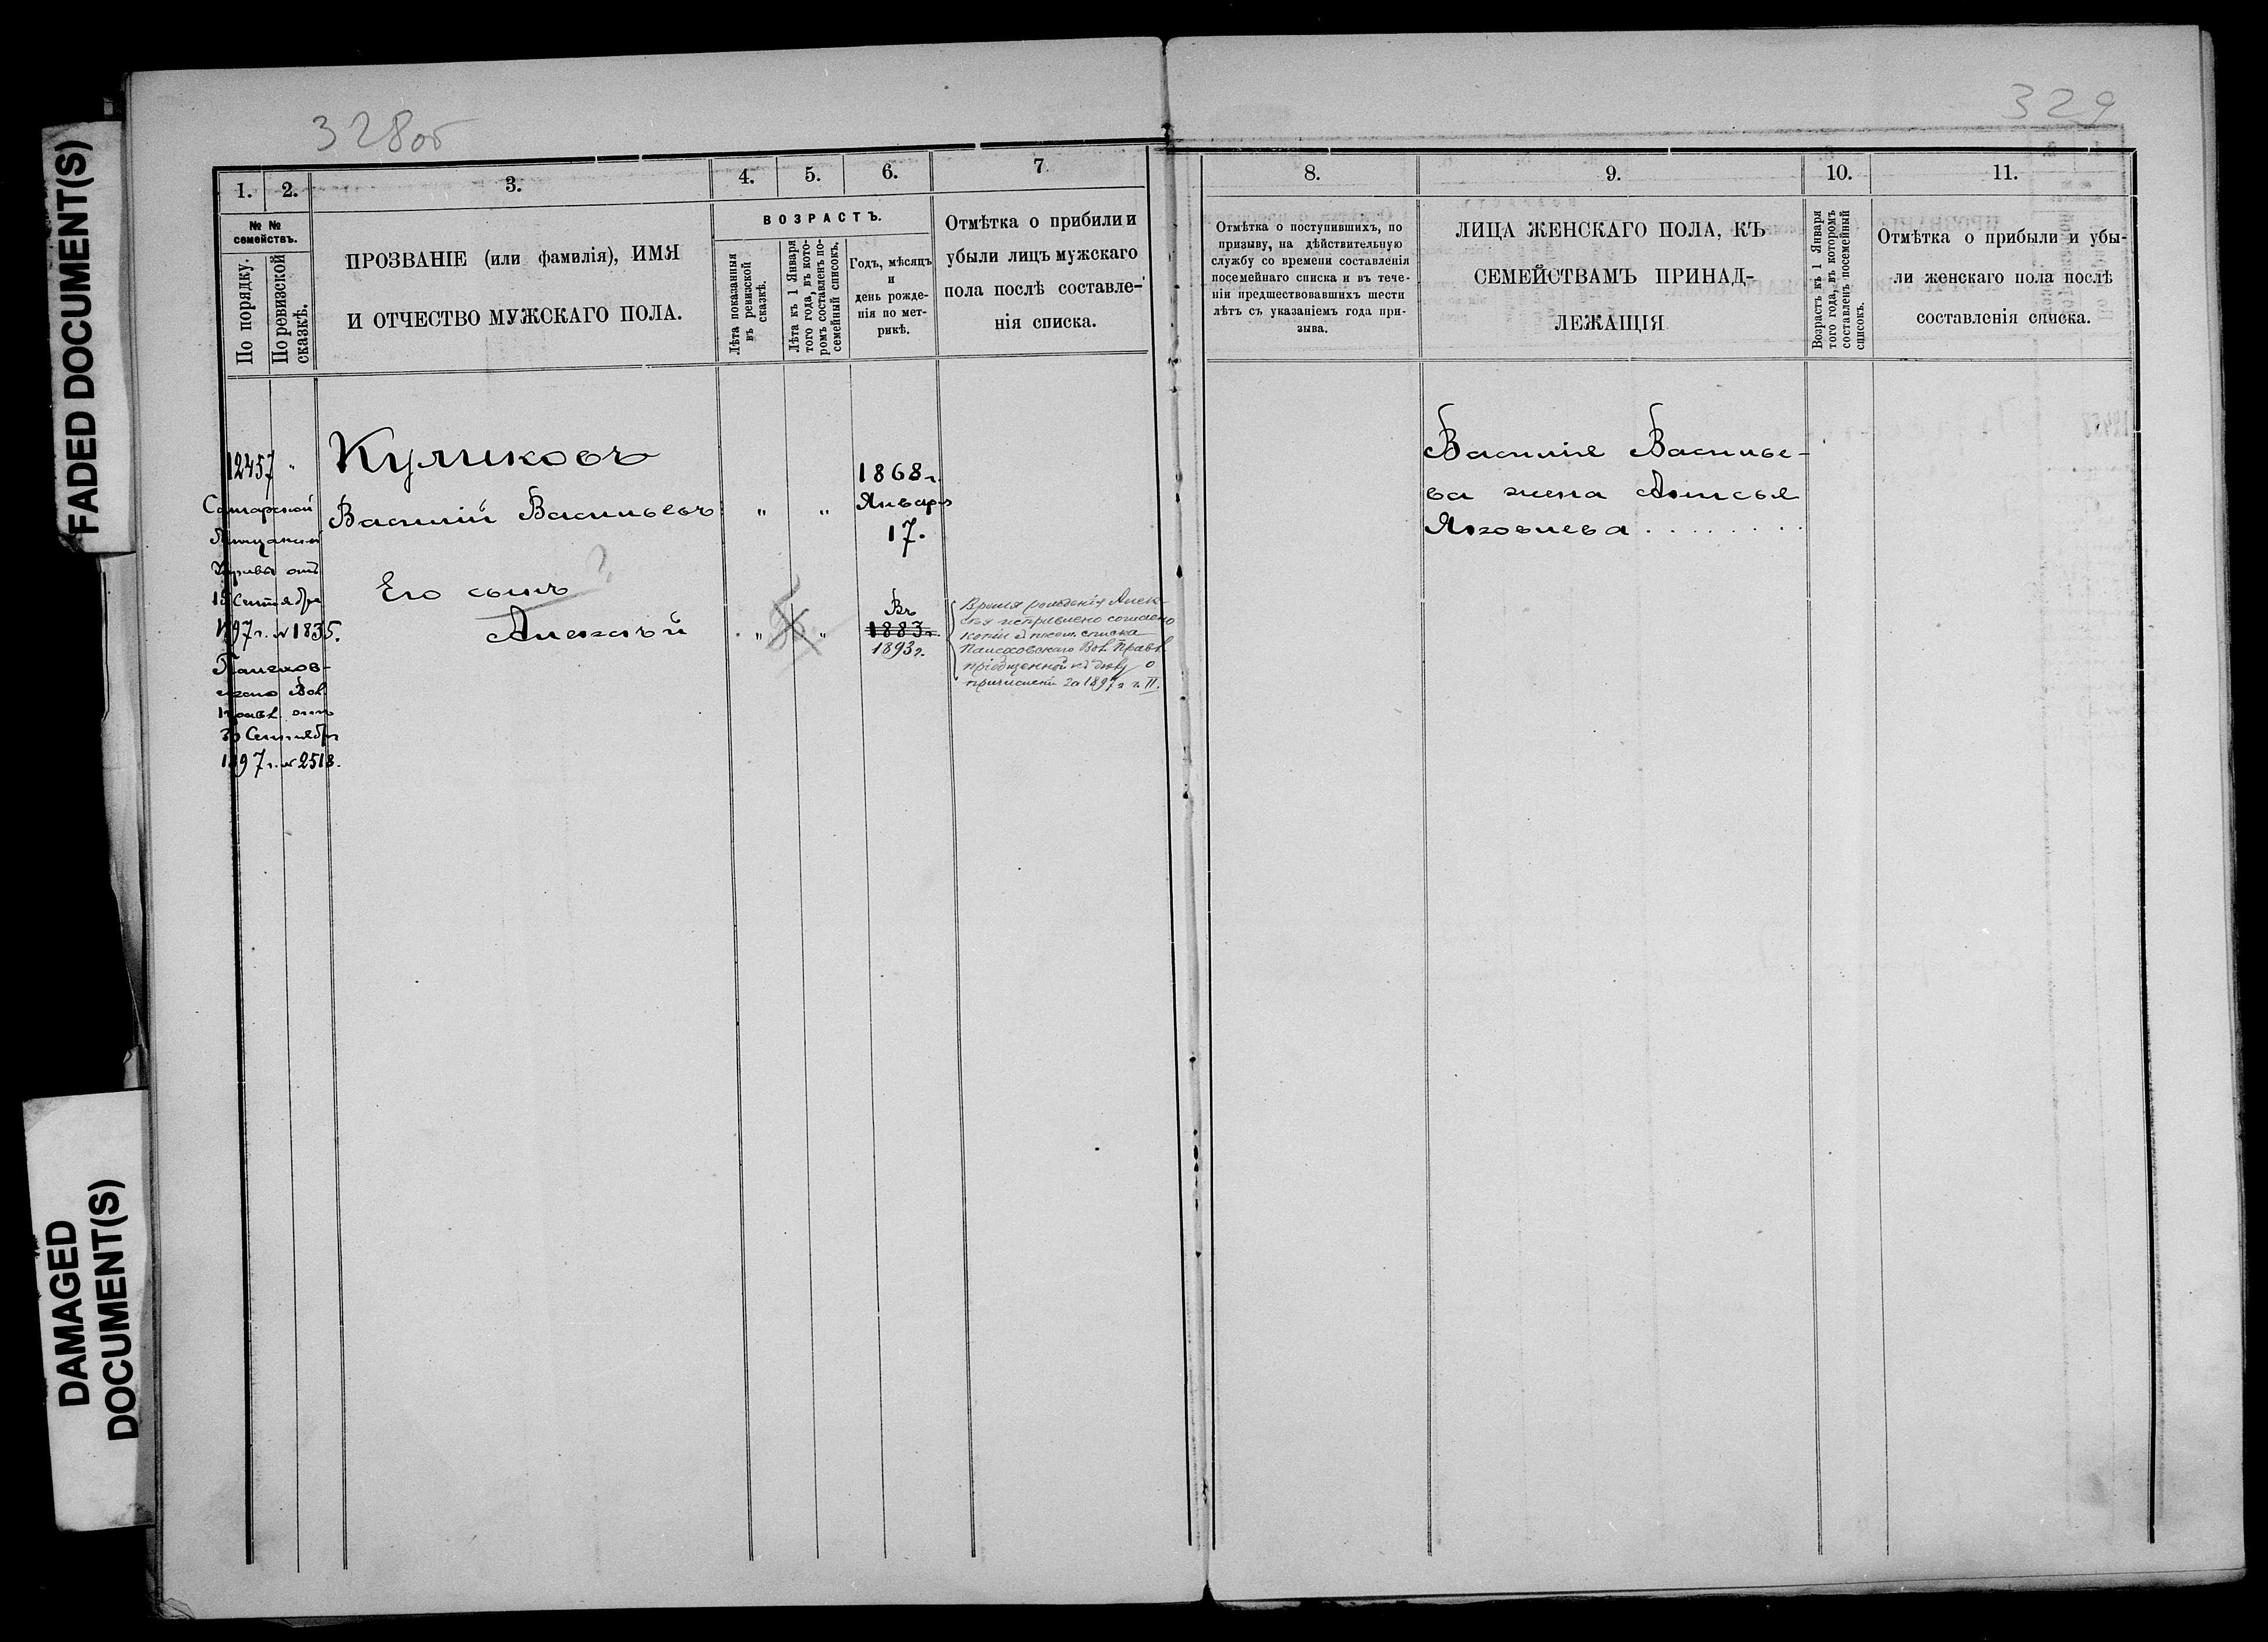 FADED DOCUMENT(S)
DAMAGED
DOCUMENT(S)
328об
1.
2.
3.
4.
5.
6.
7
№ №
семействъ.
По порядку.
По ревизской
сказкѣ.
ПРОЗВАНІЕ (или фамилія), ИМЯ
И ОТЧЕСТВО МУЖСКАГО ПОЛА.
ВОЗРАСТЪ.
Лѣта показанныя
въ ревизской
сказкѣ.
Лѣта къ 1 Января
того года, въ кото-
ромъ составленъ по-
семейный списокъ.
Годъ, мѣсяцъ
и
день рожде-
нія по мет-
рикѣ.
Отмѣтка о прибыли и
убыли лицъ мужскаго
пола послѣ составле-
нія списка.
12457 "
Самарской
Мѣщанской
Управы отъ
15 Сентября
1897 г. № 1835.
Вол.
Правл. отъ
30 Сентября
1897 г. № 2518.
Куликовъ
Василій Васильевъ " "
1868 г.
Января
17.
Его сынъ ?
Алексѣй " "
Въ
1883 г.
1893 г.
Время рожденія Алек-
сѣя исправлено согласно
копіи съ посем. списка
Вол. Правл.
пріобщенной къ дѣлу о
причисленіи за 1897 г. ч. II.
329
8.
9.
10.
11.
Отмѣтка о поступившихъ, по
призыву, на дѣйствительную
службу со времени составленія
посемейнаго списка и въ тече-
ніи предшествовавшихъ шести
лѣтъ съ указаніемъ года при-
зыва.
ЛИЦА ЖЕНСКАГО ПОЛА, КЪ
СЕМЕЙСТВАМЪ ПРИНАД-
ЛЕЖАЩІЯ
Возрастъ къ 1 Января
того года, въ которомъ
составленъ посемейный
списокъ.
Отмѣтка о прибыли и убы-
ли женскаго пола послѣ
составленія списка.
Василія Василье-
ва жена Анисья
Яковлева . . . . . . . .